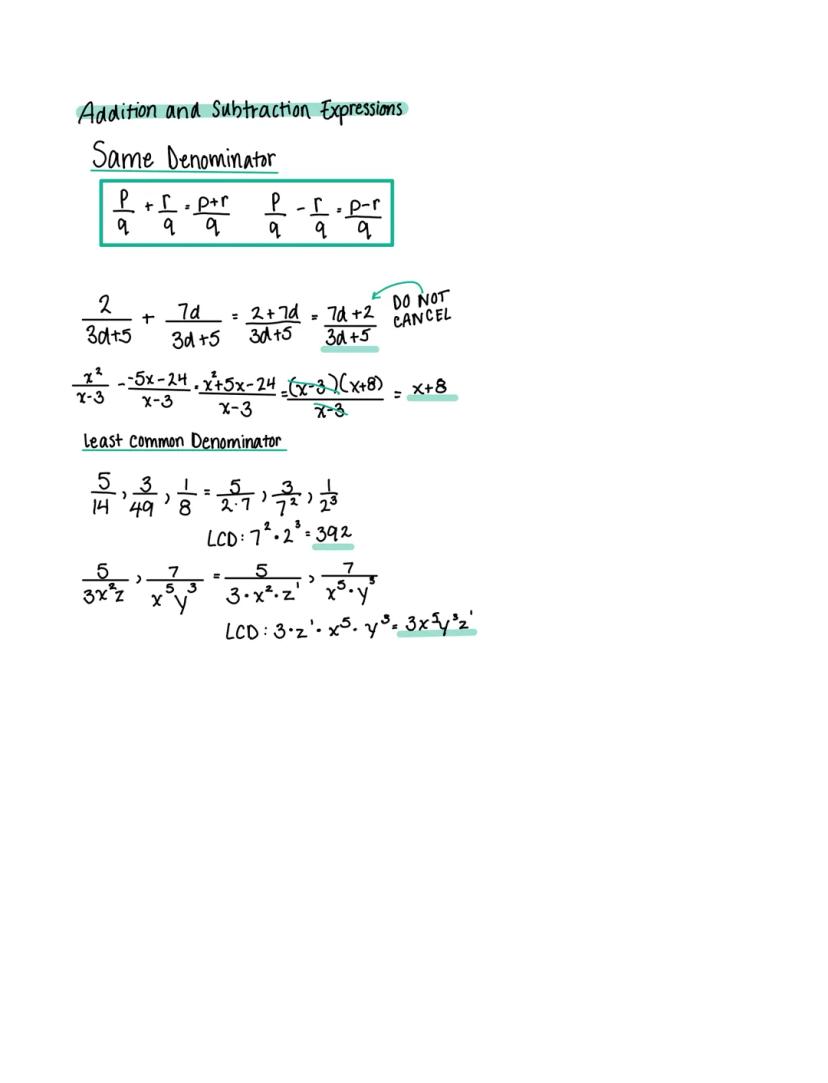 Addition and Subtraction Expressions
Same Denominator
p/q + r/q = p+r/q p/q - r/q = p-r/q
2/3d+5 + 7d/3d+5 = 2+7d/3d+5 = 7d+2/3d+5 DO NOT CANCEL
x²/x-3 - -5x-24/x-3 = x²+5x-24/x-3 = (x-3)(x+8)/x-3 = x+8
Least Common Denominator
5/14, 3/49, 1/8 = 5/2·7, 3/7², 1/2³
LCD: 7²·2³ = 392
5/3x²z, 7/x⁵y³ = 5/3·x²·z¹, 7/x⁵·y³
LCD: 3·z¹·x⁵·y³ = 3x⁵y³z¹